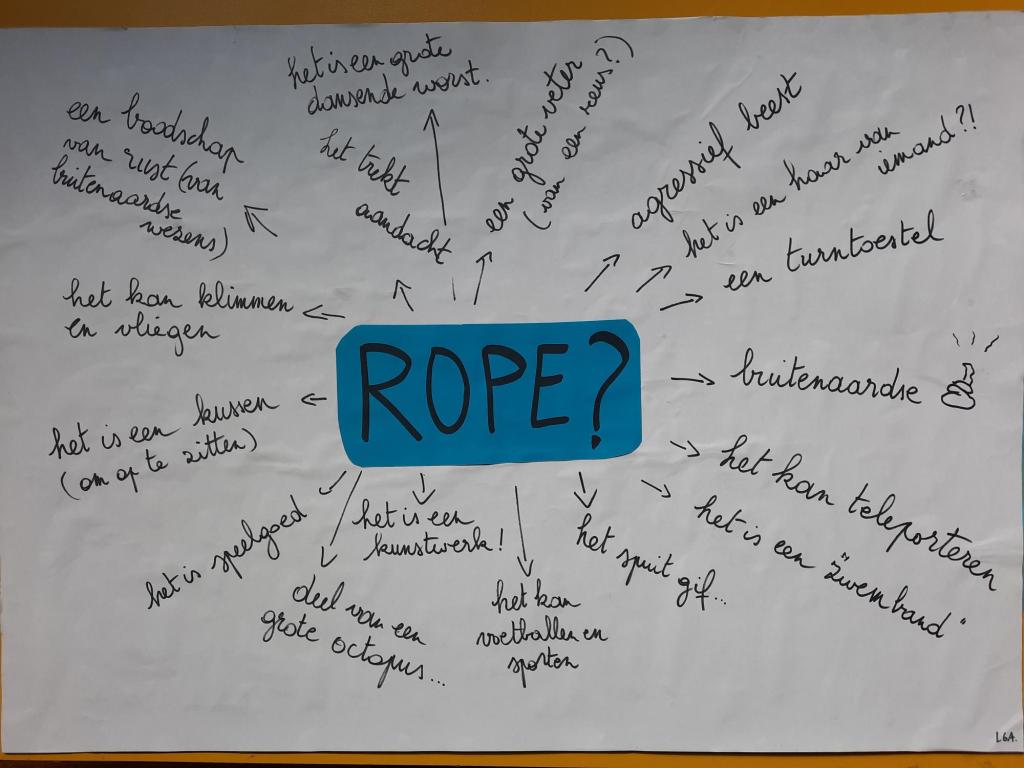 het is een grote
dansende worst.
een boodschap
van rust (van
buitenaardse
wezens)
het trekt
aandacht
een grote veter
(van een reus?)
agressief beest
het is een haar van
iemand?!
een turntoestel
het kan klimmen
en vliegen
ROPE?
buitenaardse
het is een kussen
(om op te zitten)
het kan teleporteren
het is een "zwemband"
het is speelgoed
het is een
kunstwerk!
het spuit gif...
deel van een
grote octopus...
het kan
voetballen en
sporten
L6A.